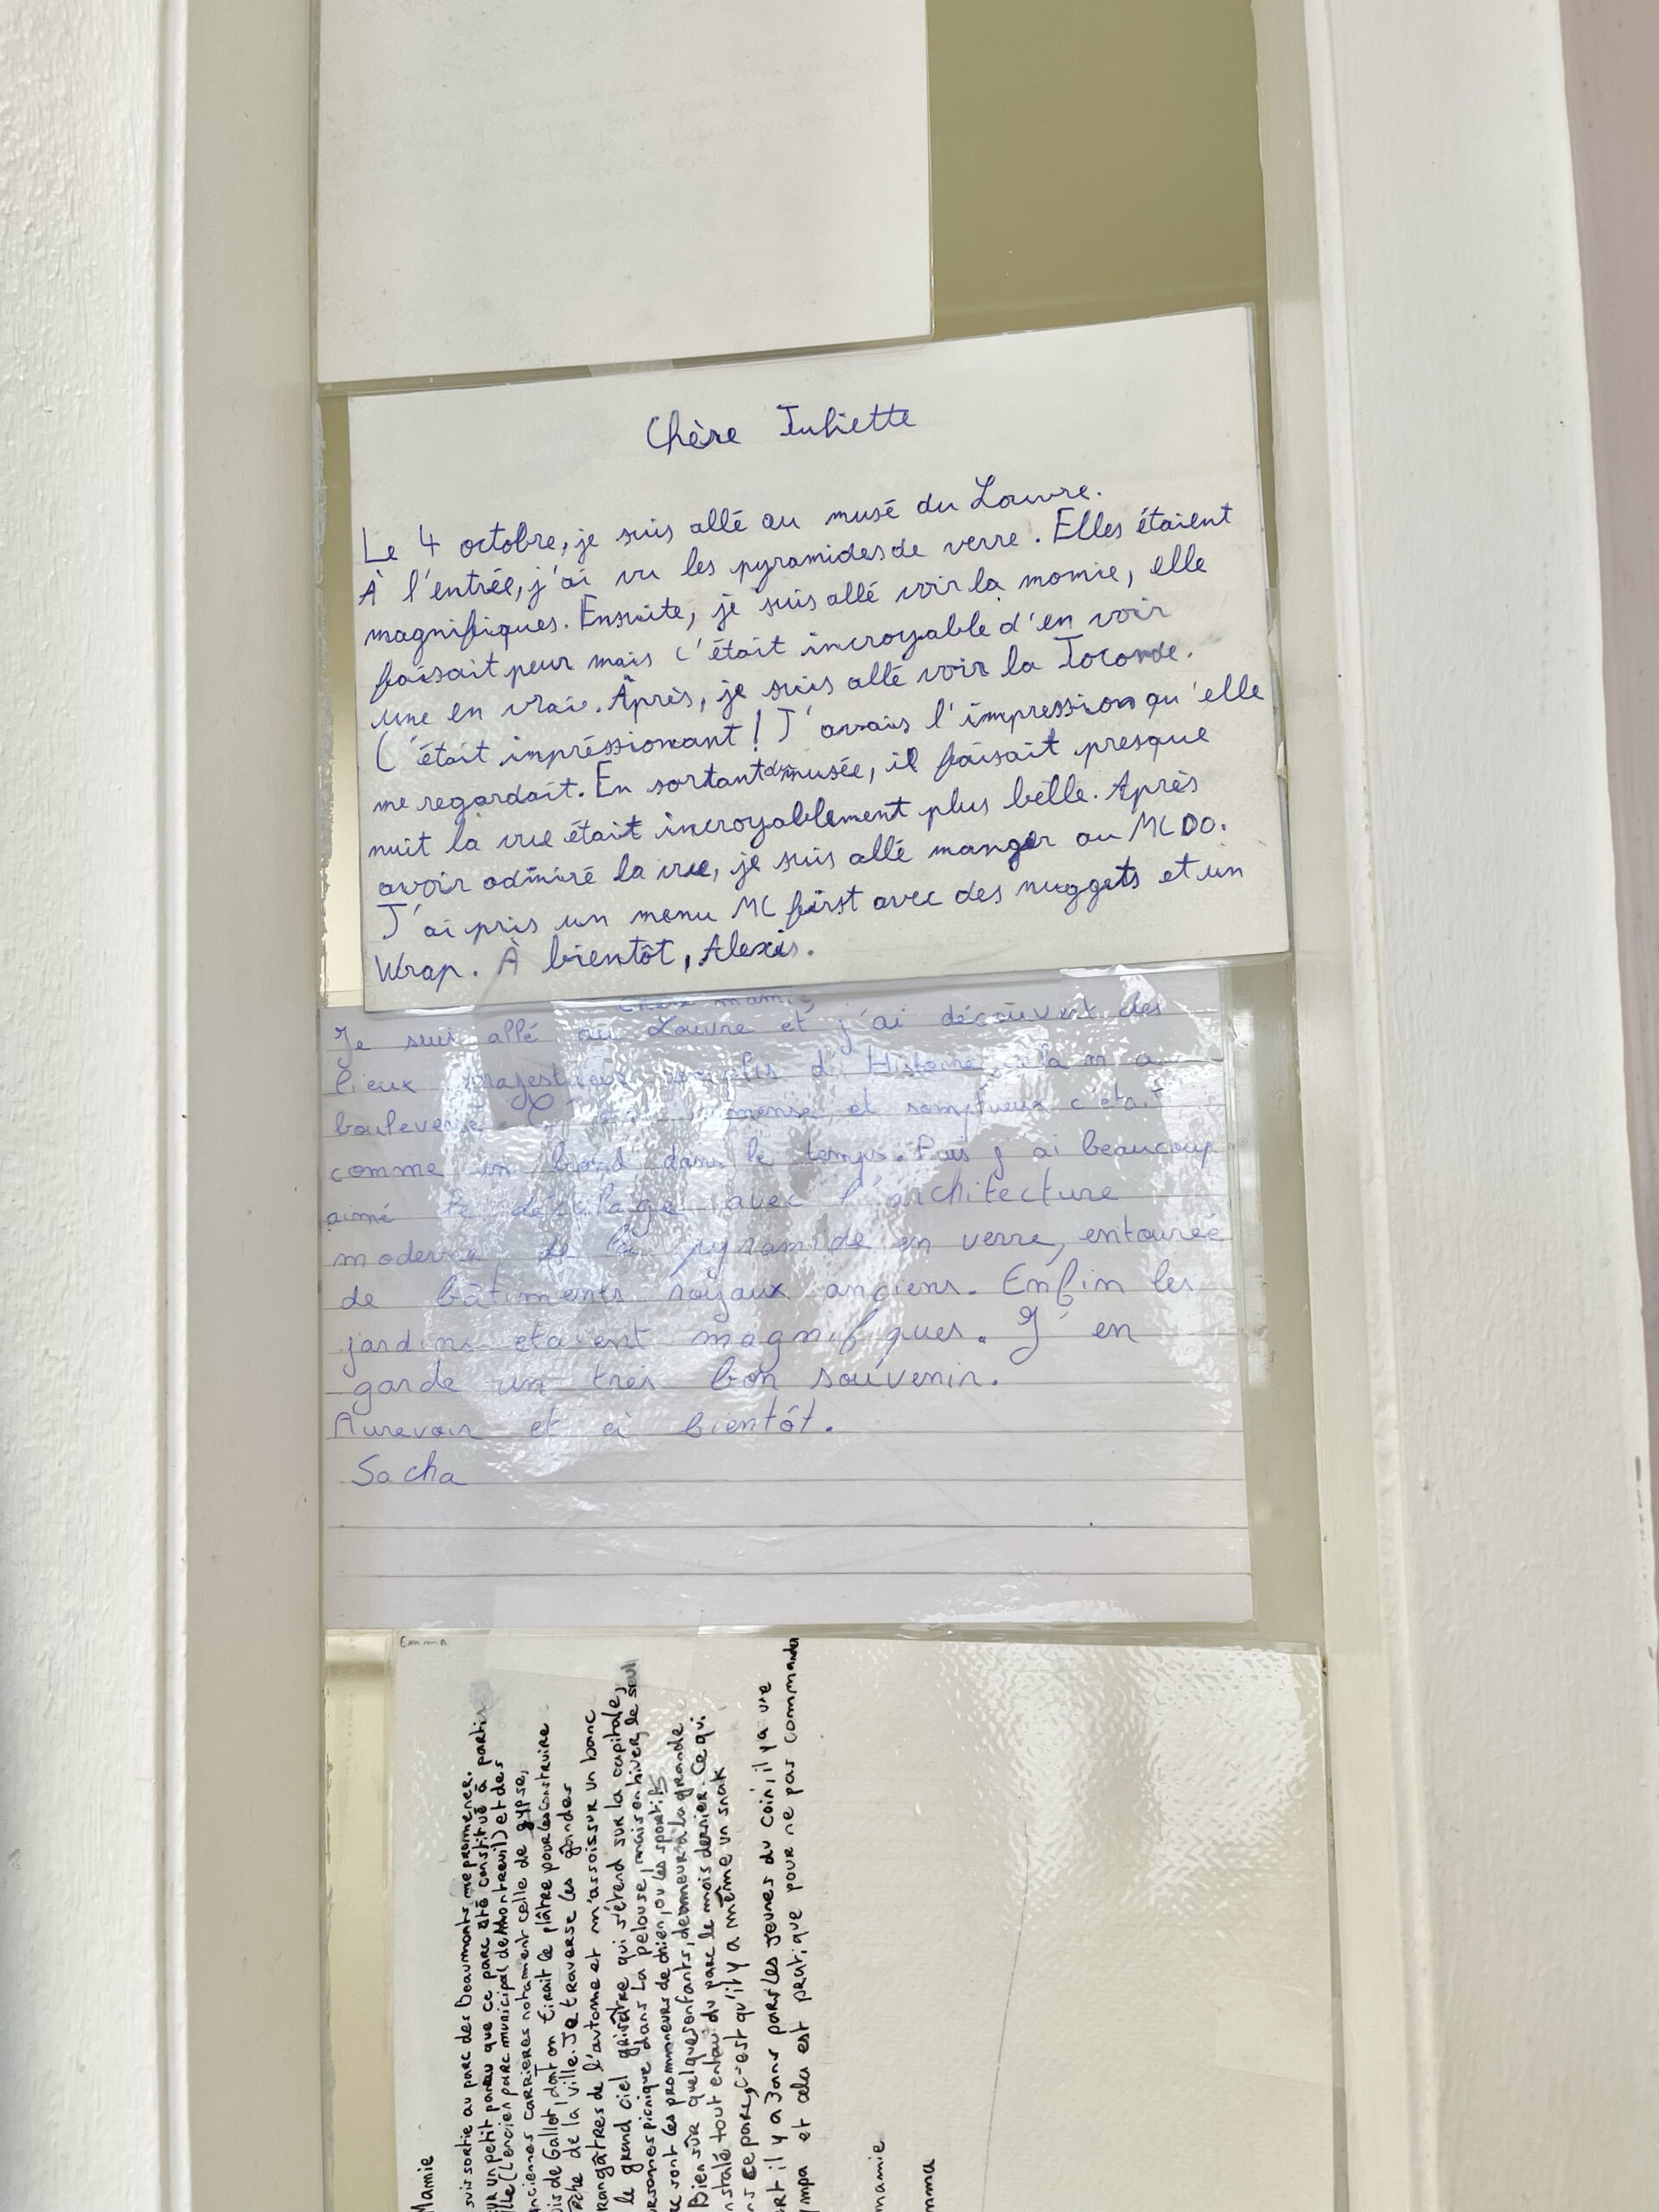 Chère Juliette
Le 4 octobre, je suis allé au musé du Louvre.
À l'entrée, j'ai vu les pyramides de verre. Elles étaient
magnifiques. Ensuite, je suis allé voir la momie, elle
faisait peur mais c'était incroyable d'en voir
une en vrai. Après, je suis allé voir la Joconde.
C'était impréssionant ! J'avais l'impression qu'elle
me regardait. En sortant du musée, il faisait presque
nuit la vue était incroyablement plus belle. Après
avoir admiré la vue, je suis allé manger au MC DO.
J'ai pris un menu MC first avec des nuggets et un
Wrap. À bientôt, Alexis.
mamie,
Je suis allé au Louvre et j'ai découvert des
lieux majestueux remplis d'Histoire, cela m'a
bouleversé. et somptueux c'était
comme un bond dans le temps. Puis j'ai beaucoup
aimé le décalage avec l'architecture
moderne de la pyramide en verre, entourée
de bâtiments royaux anciens. Enfin les
jardins etaient magnifiques. J'en
garde un très bon souvenir.
Aurevoir et à bientôt.
Sacha
Emma
Mamie
suis sortie au parc des Beaumonts me promener.
un petit que ce parc été constitué à partir
(L'encien parc municipal de Montreuil) et des
anciennes carrières notament celle de gypse,
de Gallot, dont on tirait le plâtre pour construire
de la ville. Je traverse les
de l'automne et m'assois sur un banc
le grand ciel grisâtre qui s'étend sur la capitale,
picnique dans la pelouse, mais en hiver, le seul
sont les prommeurs de chien, ou les sportifs
Bien sûr quelques enfants, a la grande
tout du parc le mois dernier. Ce qui
ce parc, c'est qu'il y a même un snak
il y a 3 ans par les jeunes du coin, il y a vie
et cela est pratique pour ne pas commander
mamie